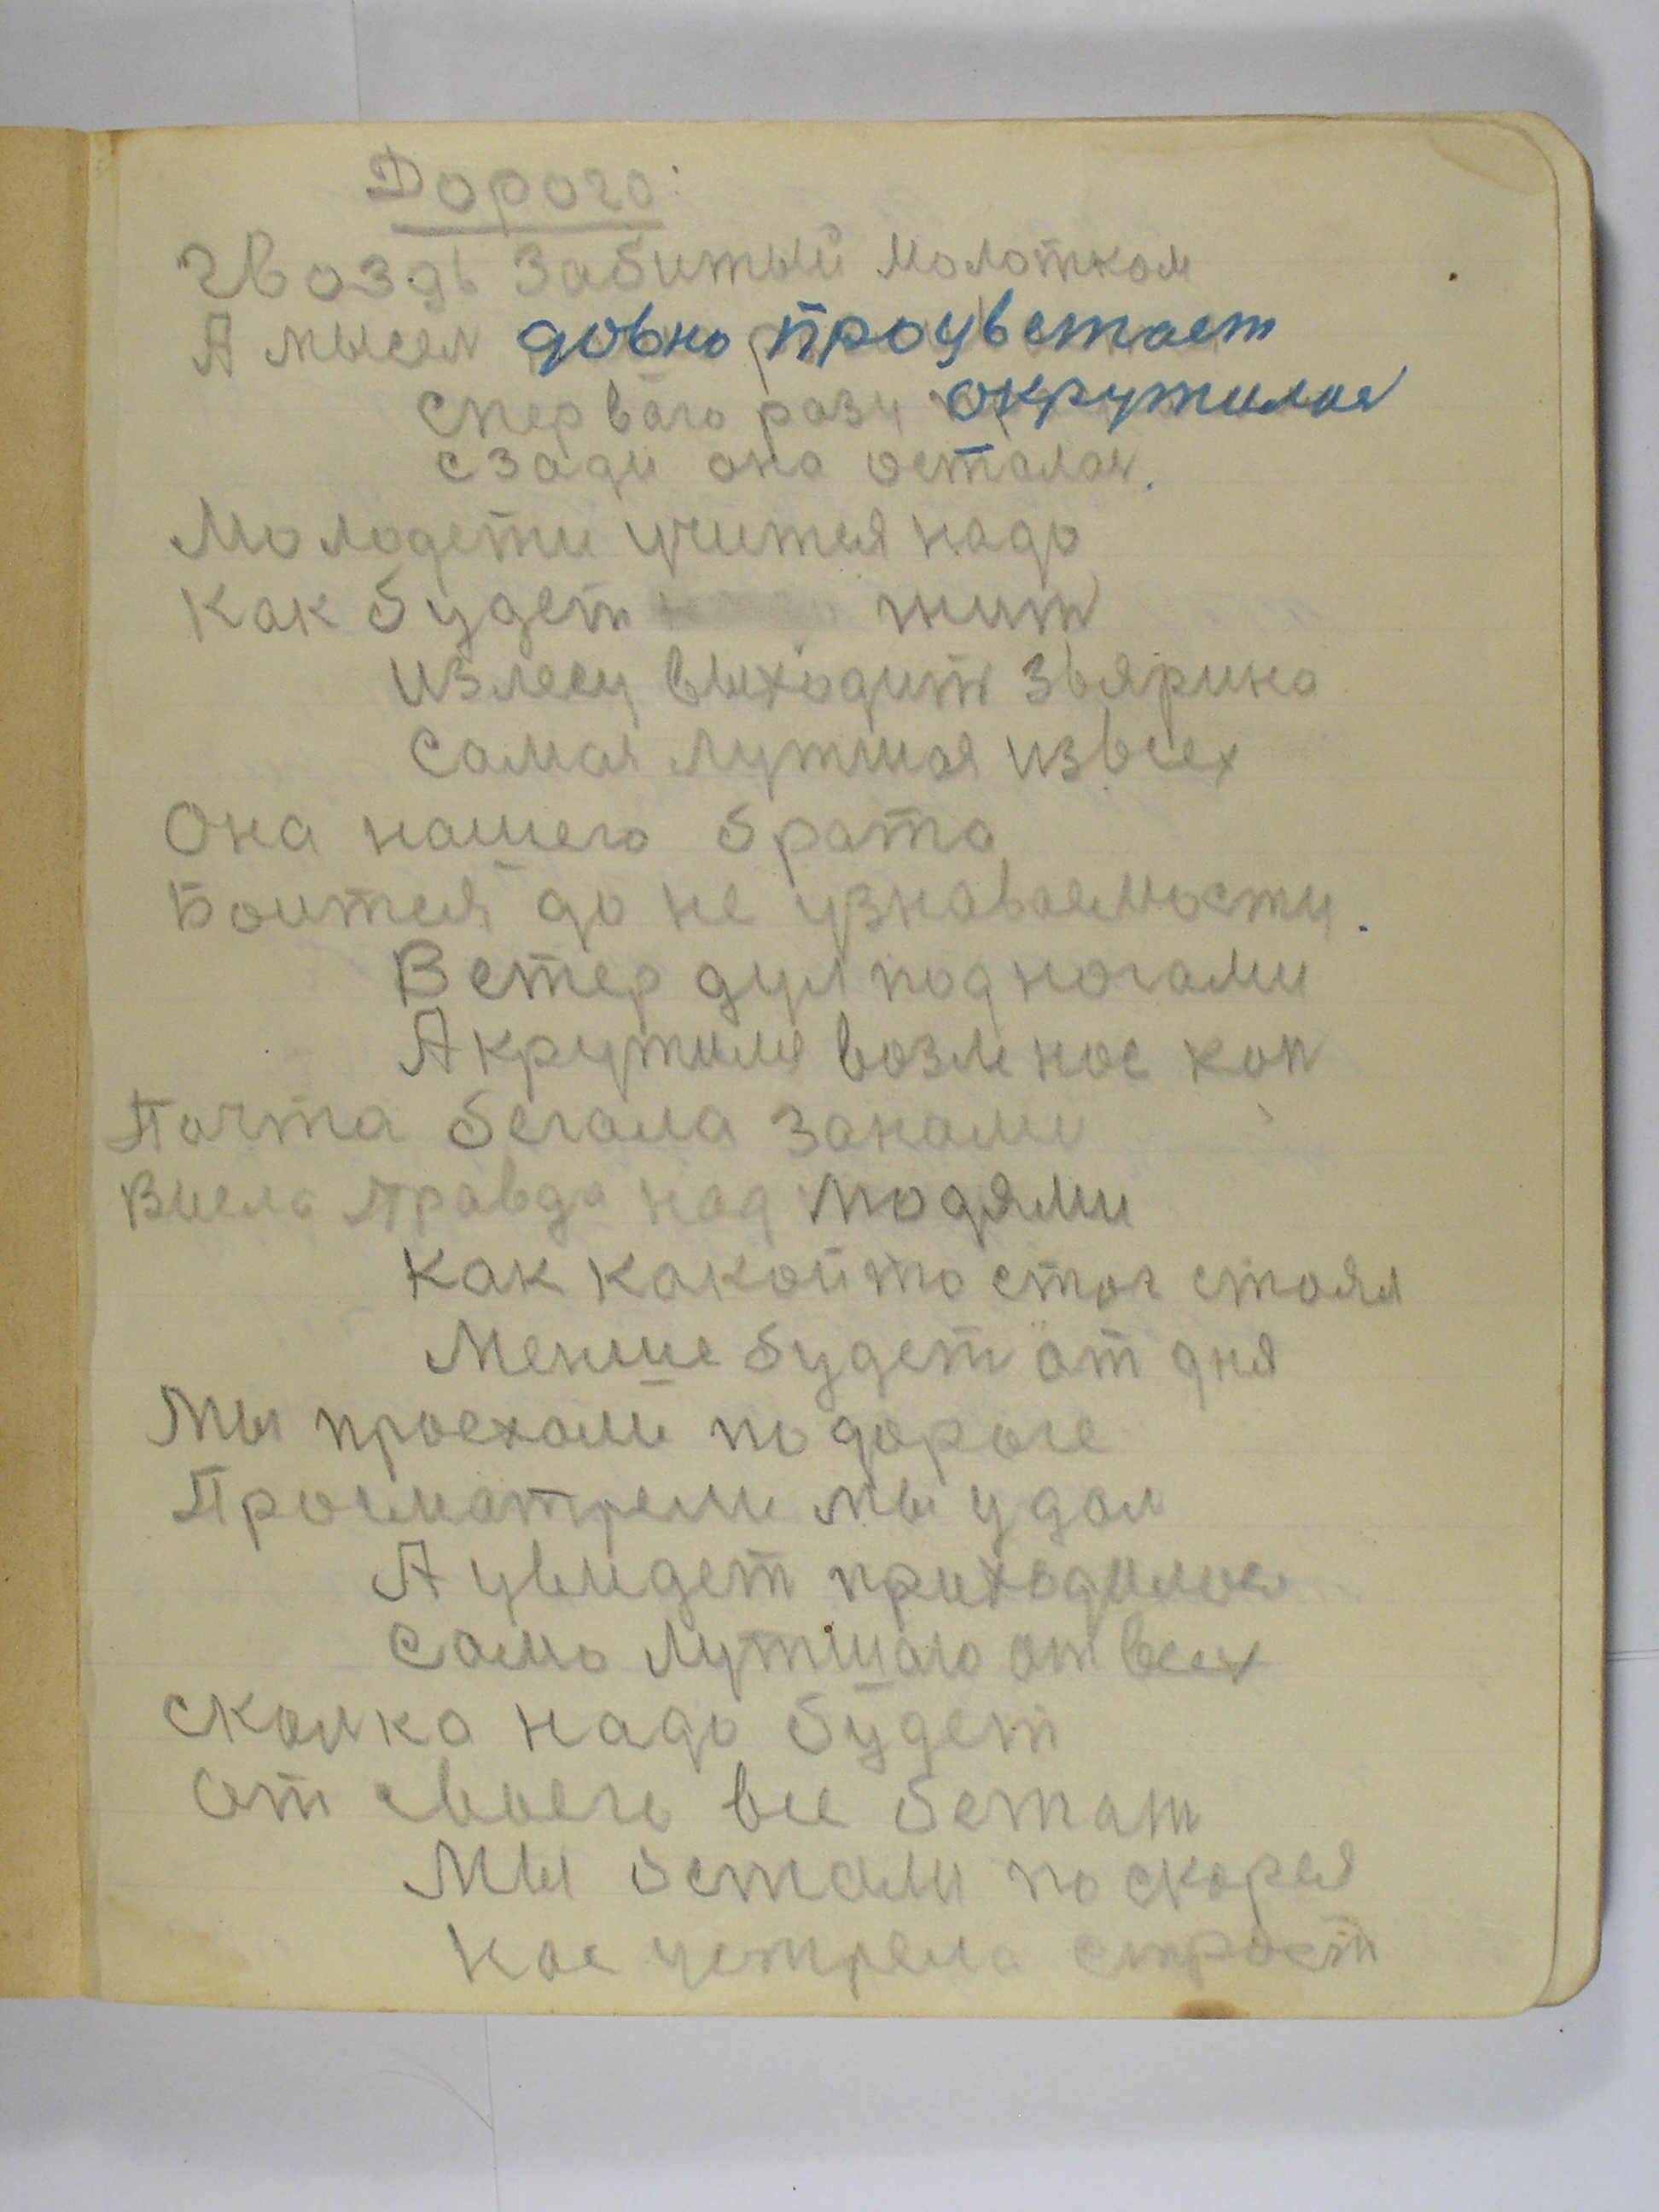 Дорога:
Гвоздь забитый молотком
А мысля довно процветает
сперваго разу окружилося
сзади она осталая.
Молодети учится надо
Как будет жить
излесу выходить звярина
самая лутшая извсех
Она нашего брата
Боится до не узнаваемости.
Ветер дул под ногами
А кружился возле нас кол
Почта бегала занами
Висела правда над людями
Как какойто стог стоял
Менше будет от дня
Мы проехали по дороге
Просматрели мы удал
А увидет приходилося
само лутшаго от всех
сколко надо будет
от своего все бежат
Мы бежали поскорея
Нас устрела страст